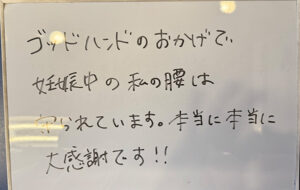 ゴッドハンドのおかげで、
妊娠中の私の腰は
守られています。本当に本当に
大感謝です!!